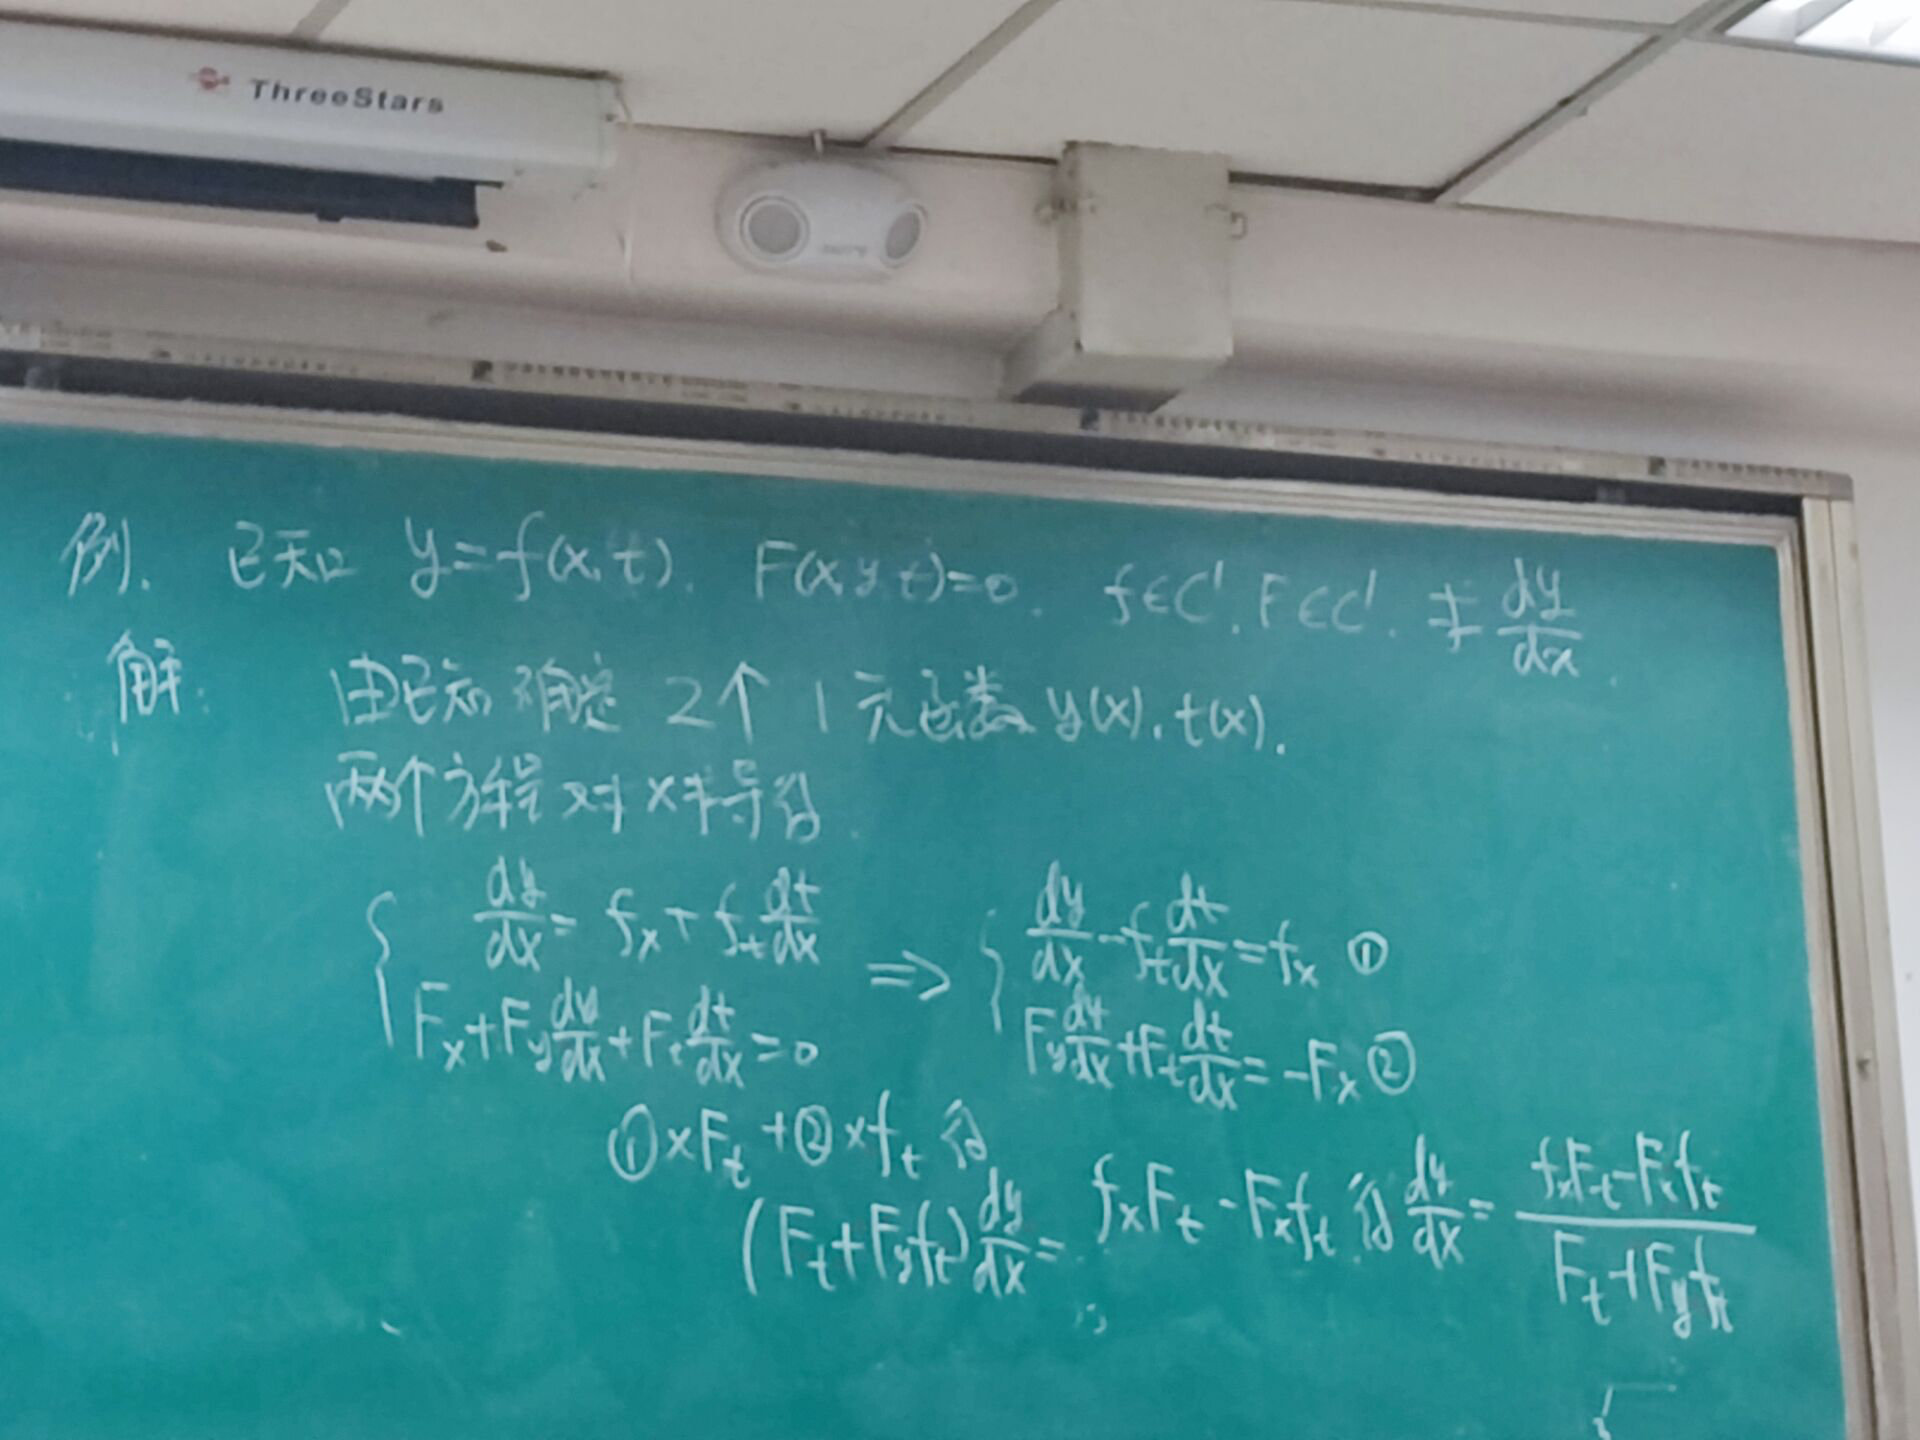 ThreeStars
例. 已知 y=f(x,t). F(x y t)=0. f∈C¹. F∈C¹. 求 dy/dx.
解: 由已知确定 2个 1元函数 y(x). t(x).
两个方程对x求导得
{ dy/dx = fₓ + fₜ dt/dx ⇒ { dy/dx - fₜ dt/dx = fₓ ①
Fₓ + F_y dy/dx + Fₜ dt/dx = 0 F_y dy/dx + Fₜ dt/dx = -Fₓ ②
①×Fₜ + ②×fₜ 得
(Fₜ + F_y fₜ) dy/dx = fₓFₜ - Fₓfₜ 得 dy/dx = (fₓFₜ - Fₓfₜ)/(Fₜ + F_y fₜ)